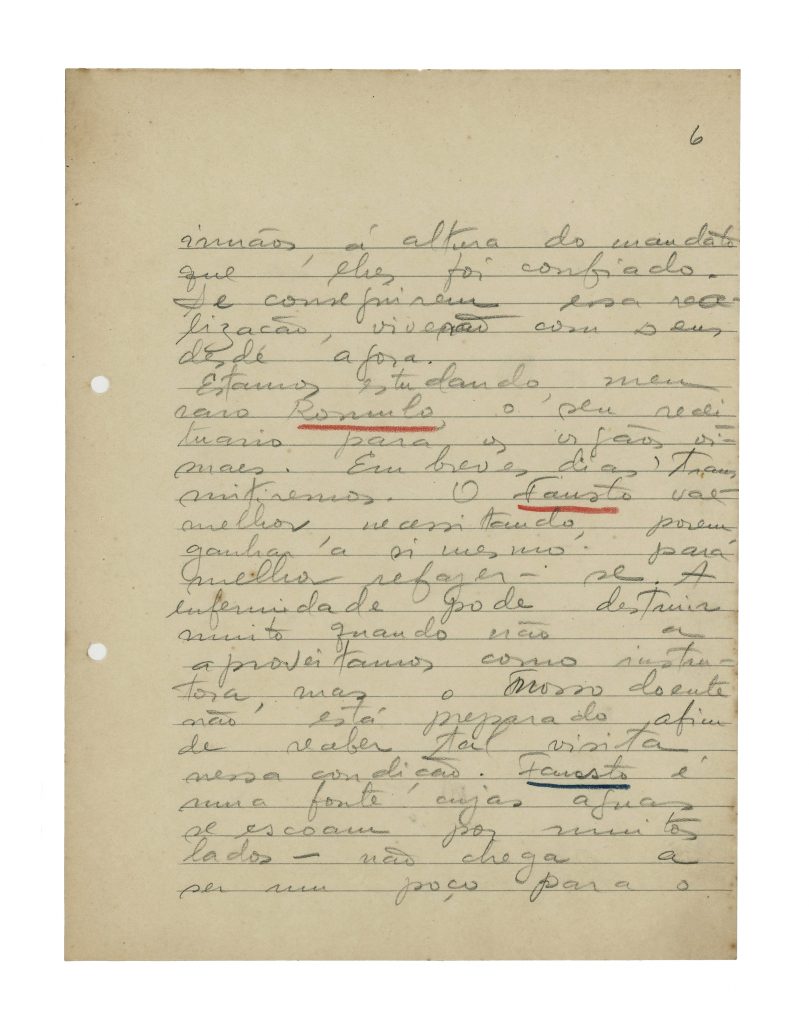 6
irmãos, á altura do mandato
que lhes foi confiado.
Se conseguirem essa rea-
lização, viverão com Deus
desde agora.
Estamos estudando, meu
caro Romulo, o seu recei
tuario para os orgãos vi-
suaes. Em breves dias, trans
mitiremos. O Fausto vae
melhor necessitando, porem
ganhar a si mesmo para
melhor refazer-se. A
enfermidade pode destruir
muito quando não a
aproveitamos como instru-
tora, mas o nosso doente
não está preparado afim
de receber tal visita
nessa condição. Fausto é
uma fonte cujas aguas
se escoam por muitos
lados - não chega a
ser um poço para o